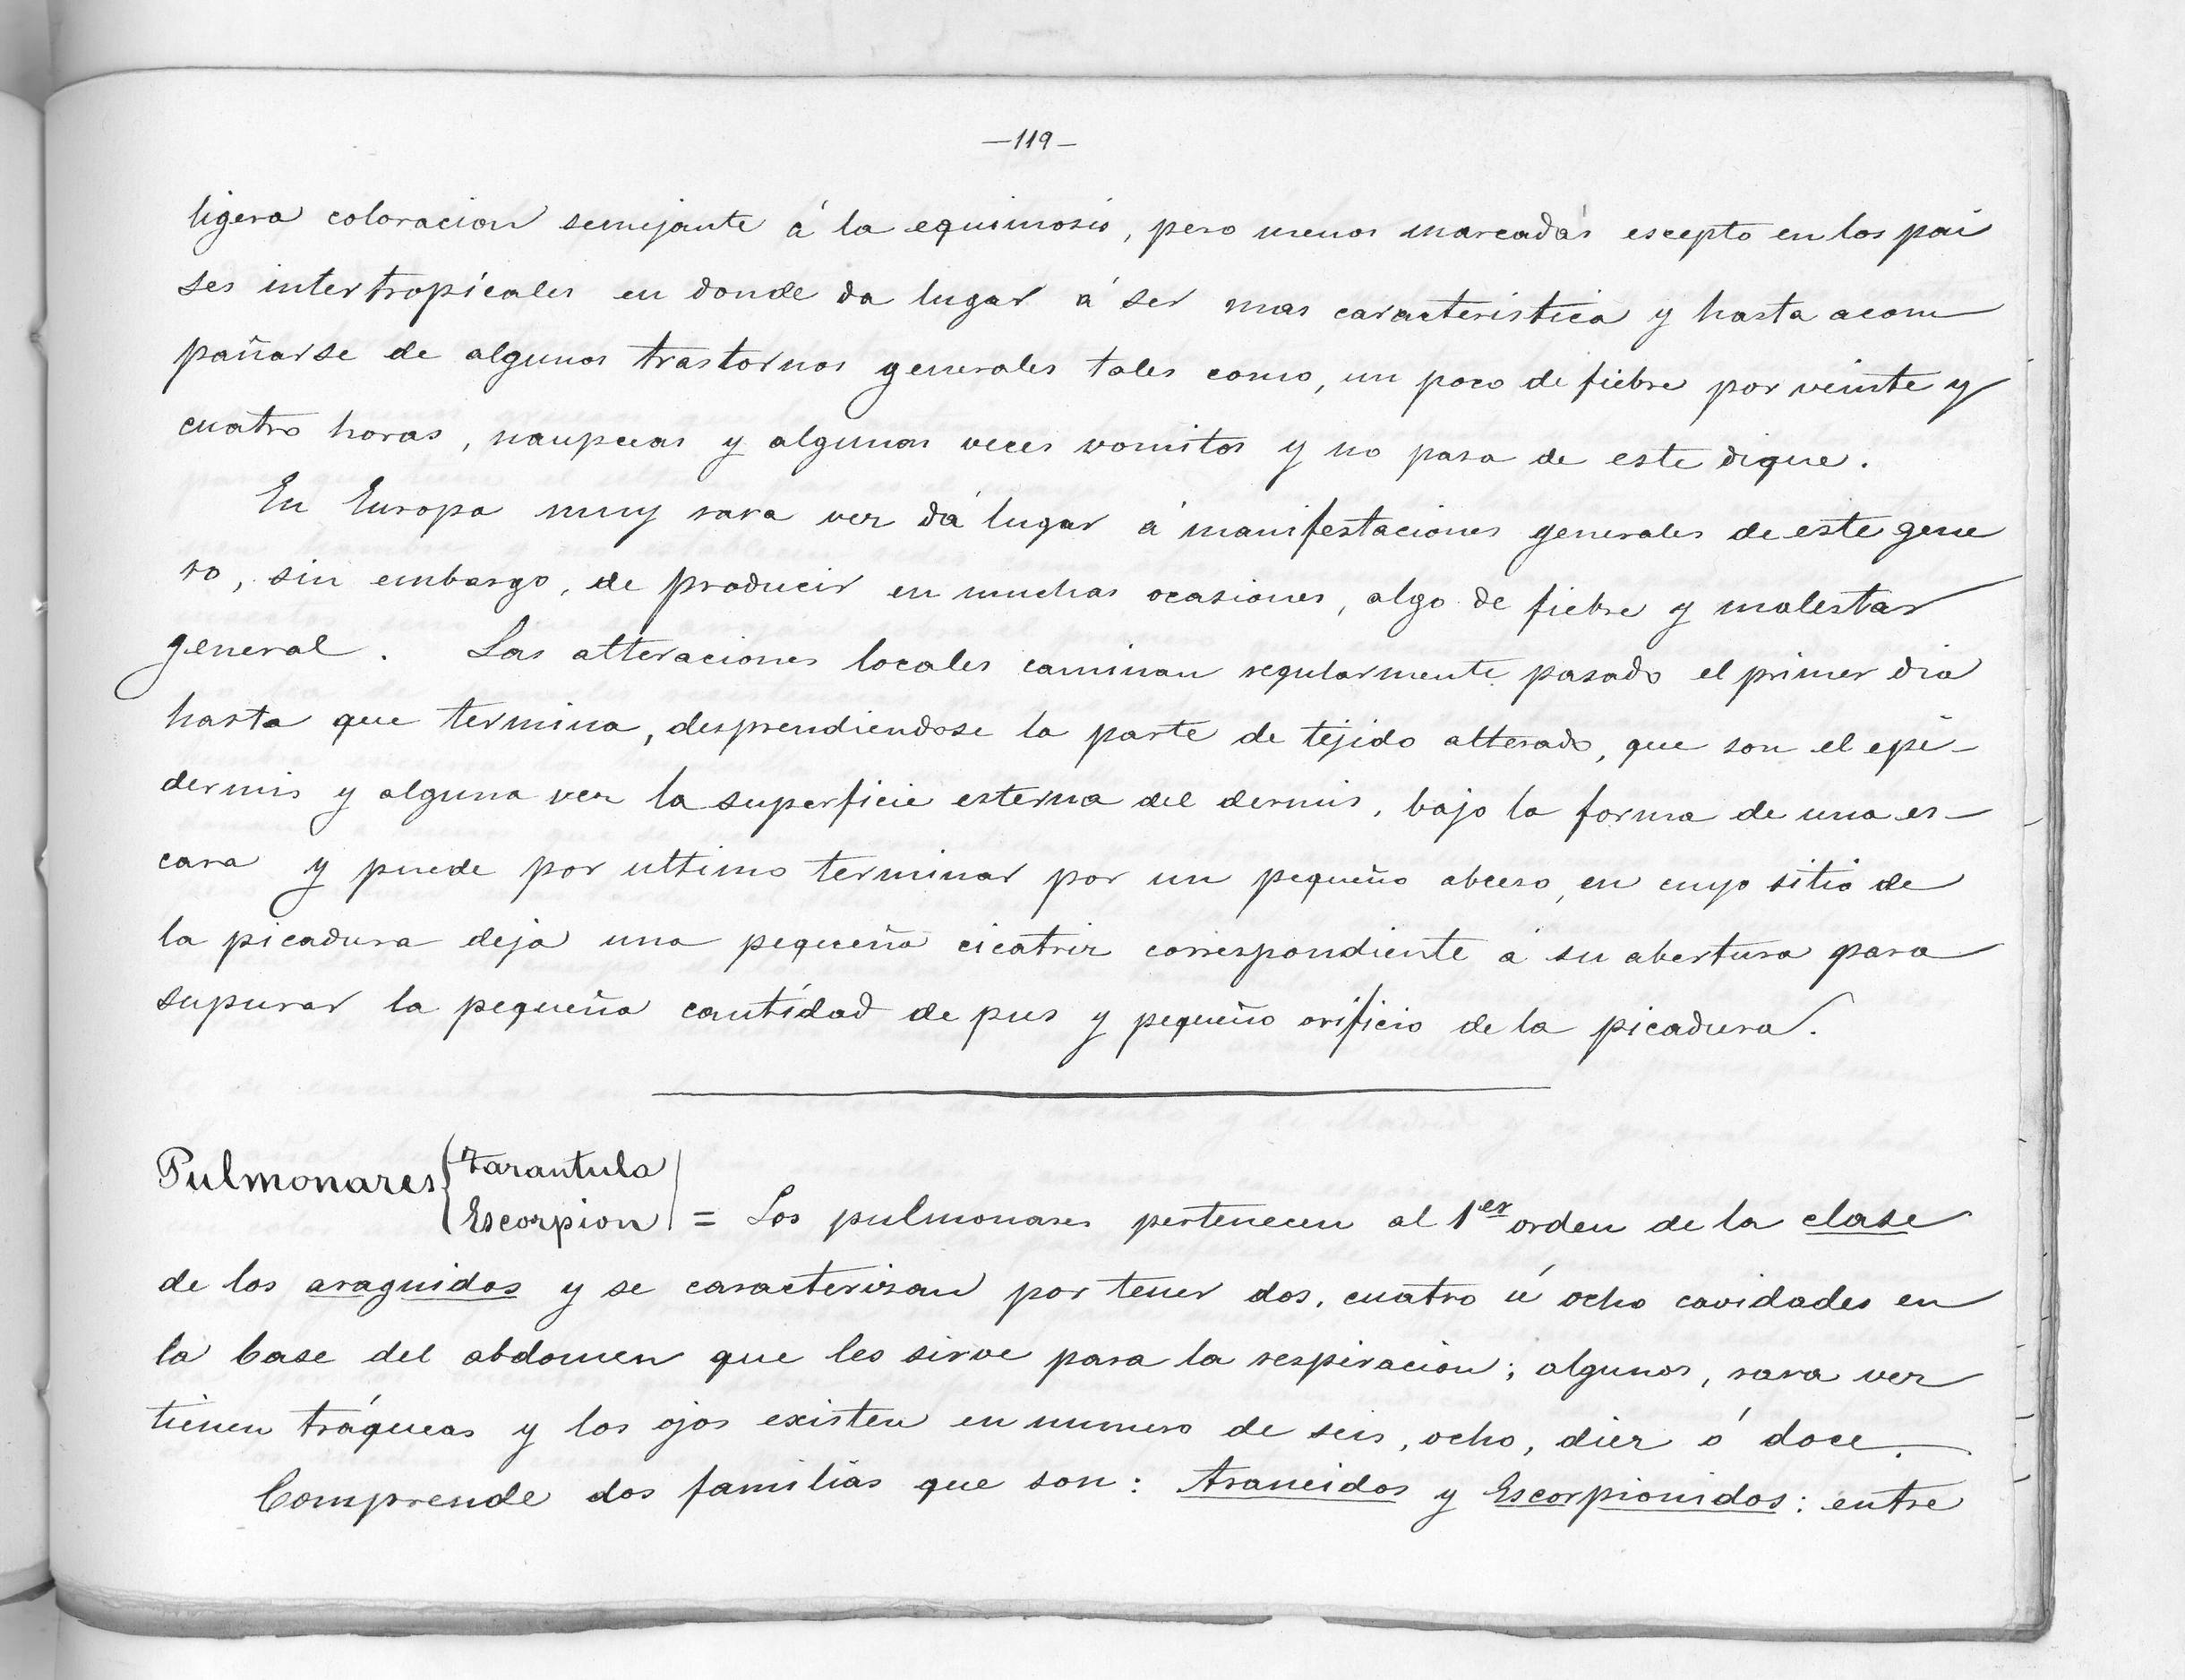 —119—
ligera coloracion semejante á la equimosis, pero menos marcadas escepto en los pai
ses intertropicales en donde da lugar á ser mas caracteristica y hasta acom
pañarse de algunos trastornos generales tales como, un poco de fiebre por veinte y
cuatro horas, naupseas y algunas veces vomitos y no pasa de este dique.
En Europa muy rara vez dá lugar á manifestaciones generales de este gene
ro, sin embargo, de producir en muchas ocasiones, algo de fiebre y malestar
general. Las alteraciones locales caminan regularmente pasado el primer dia
hasta que termina, desprendiendose la parte de tejido alterado, que son el epi-
dermis y alguna vez la superficie esterna del dermis, bajo la forma de una es-
cara y puede por ultimo terminar por un pequeño abceso, en cuyo sitio de
la picadura deja una pequeña cicatriz correspondiente á su abertura para
supurar la pequeña cantidad de pus y pequeño orificio de la picadura.
Pulmonares { Tarantula
Escorpion } = Los pulmonares pertenecen al 1er orden de la clase
de los aragnidos y se caracterizan por tener dos, cuatro ú ocho cavidades en
la base del abdomen que les sirve para la respiracion; algunos, rara vez
tienen tráqueas y los ojos existen en numero de seis, ocho, diez ó doce.
Comprende dos familias que son: Araneidos y Escorpionidos: entre